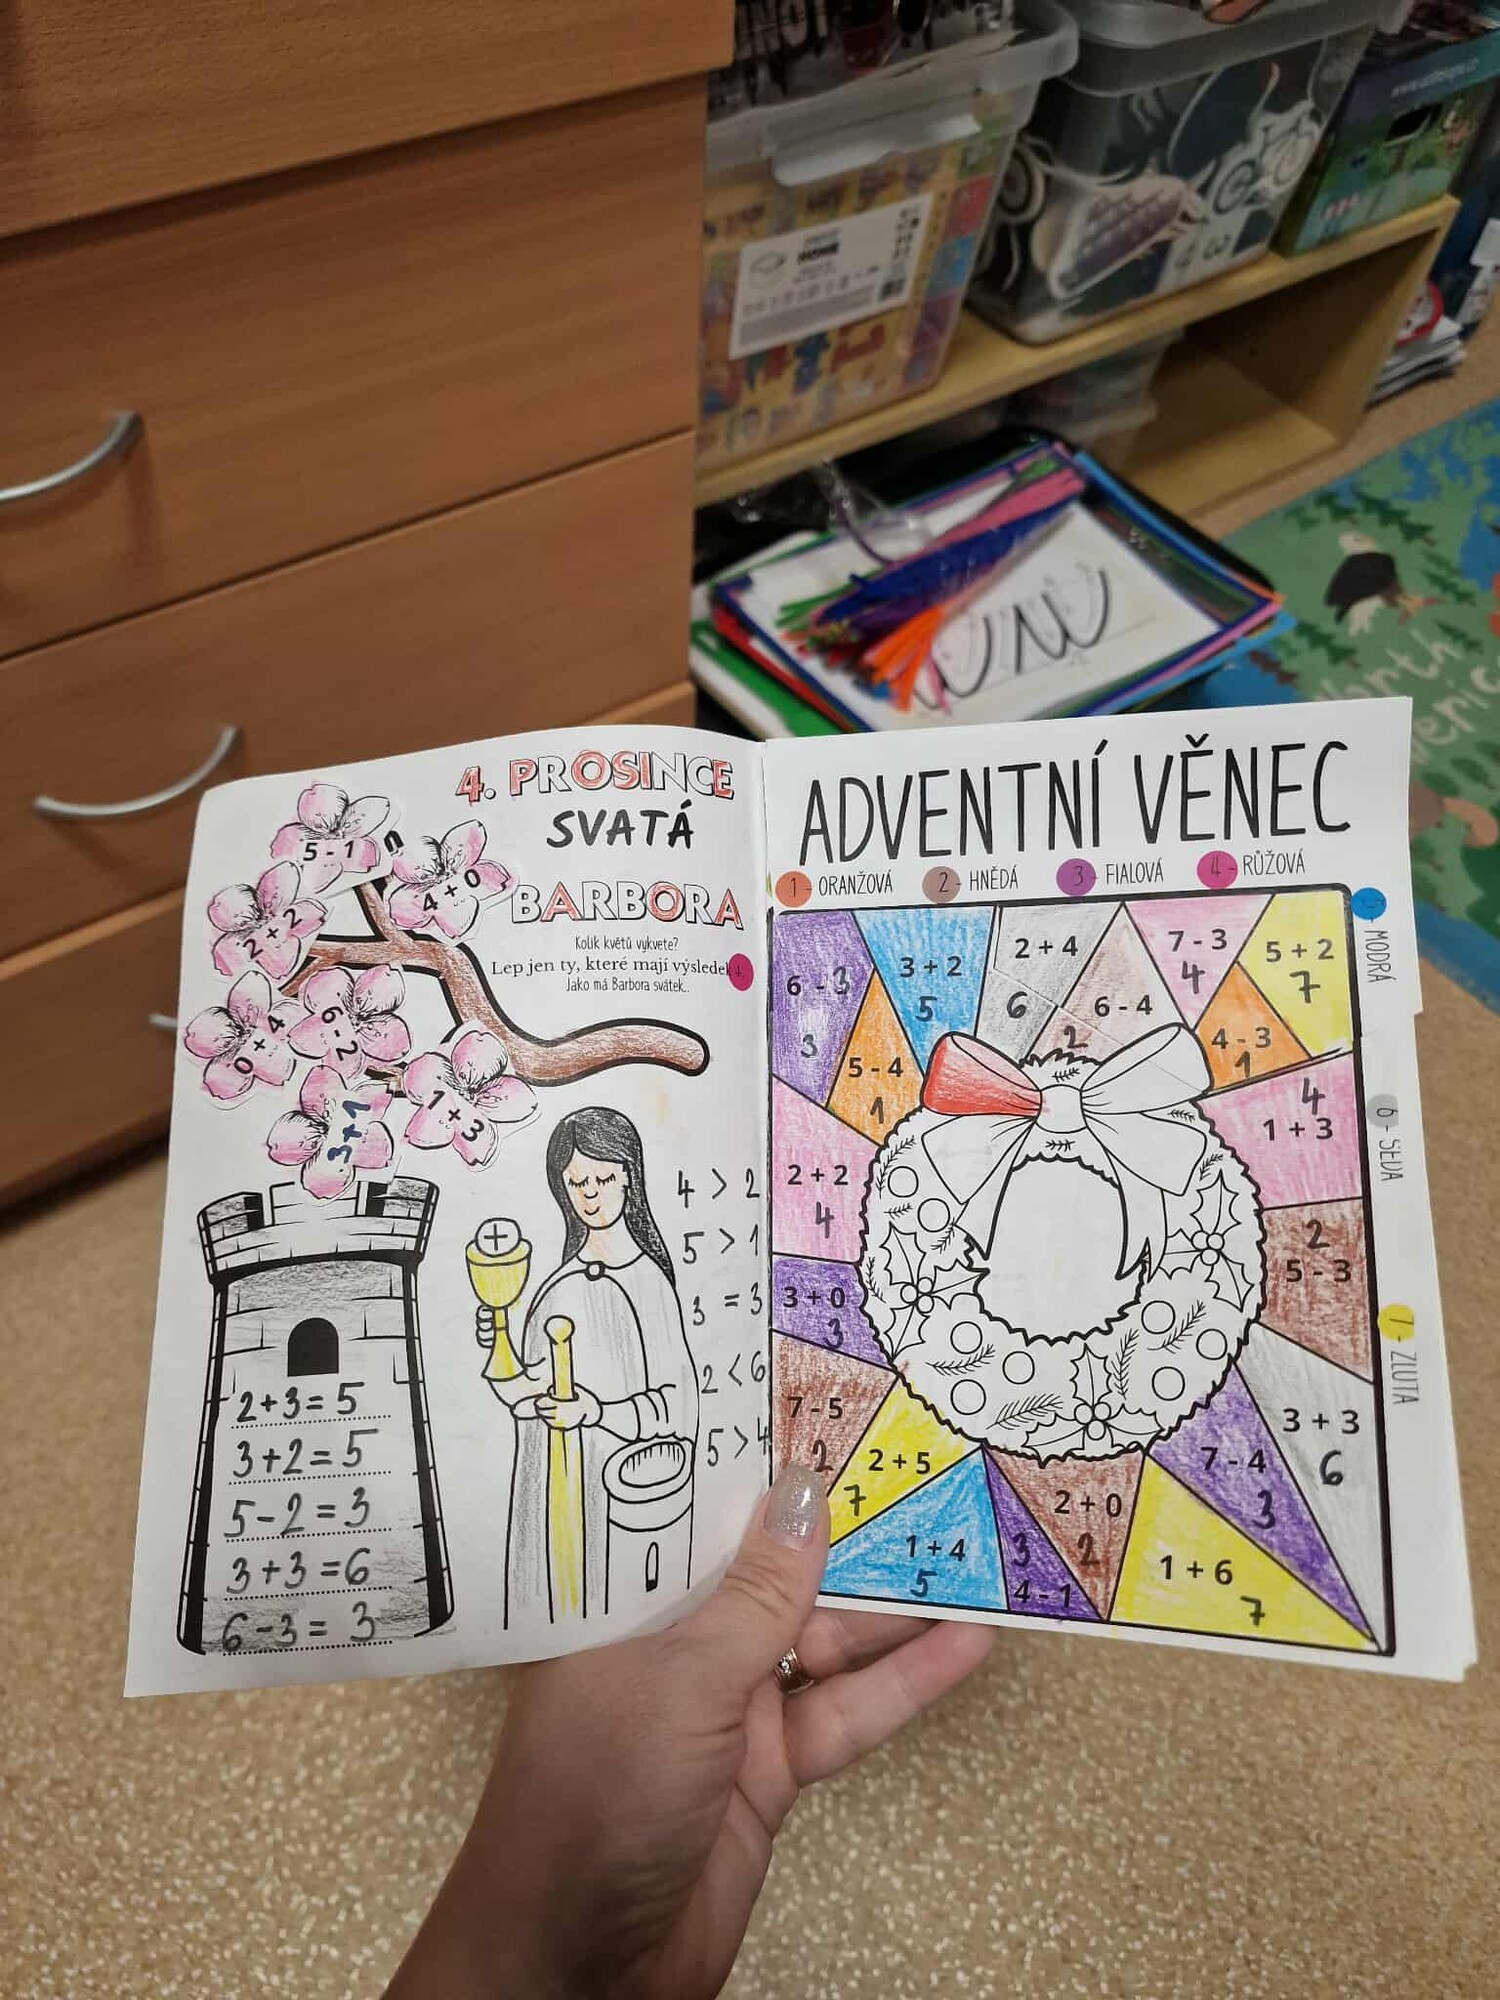 HOME
North
4. PROSINCE
SVATÁ
BARBORA
Kolik květů vykvete?
Lep jen ty, které mají výsledek 4.
Jako má Barbora svátek..
5 - 1
4 + 0
2 + 2
0 + 4
6 - 2
1 + 3
3+1
4 > 2
5 > 1
3 = 3
2 < 6
5 > 4
2+3=5
3+2=5
5-2=3
3+3=6
6-3=3
ADVENTNÍ VĚNEC
1 - ORANŽOVÁ 2 - HNĚDÁ 3 - FIALOVÁ 4 - RŮŽOVÁ
5 - MODRÁ
6 - ŠEDÁ
7 - ŽLUTÁ
6 - 3
3
3 + 2
5
2 + 4
6
6 - 4
2
7 - 3
4
5 + 2
7
5 - 4
1
4 - 3
1
2 + 2
4
4
1 + 3
3 + 0
3
2
5 - 3
7 - 5
2
2 + 5
7
1 + 4
5
3
4 - 1
2 + 0
2
1 + 6
7
7 - 4
3
3 + 3
6